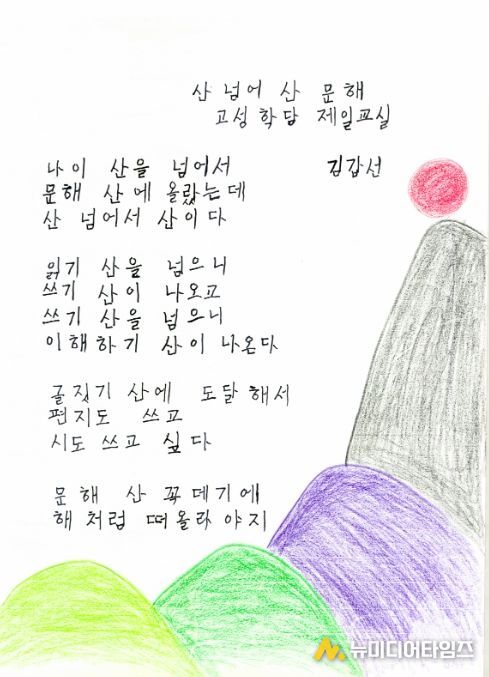 산 넘어 산 문해
고성학당 제일교실
김갑선
나이 산을 넘어서
문해 산에 올랐는데
산 넘어서 산이다
읽기 산을 넘으니
쓰기 산이 나오고
쓰기 산을 넘으니
이해하기 산이 나온다
글짓기 산에 도달해서
편지도 쓰고
시도 쓰고 싶다
문해 산 꼭데기에
해처럼 떠올라야지
뉴미디어타임즈